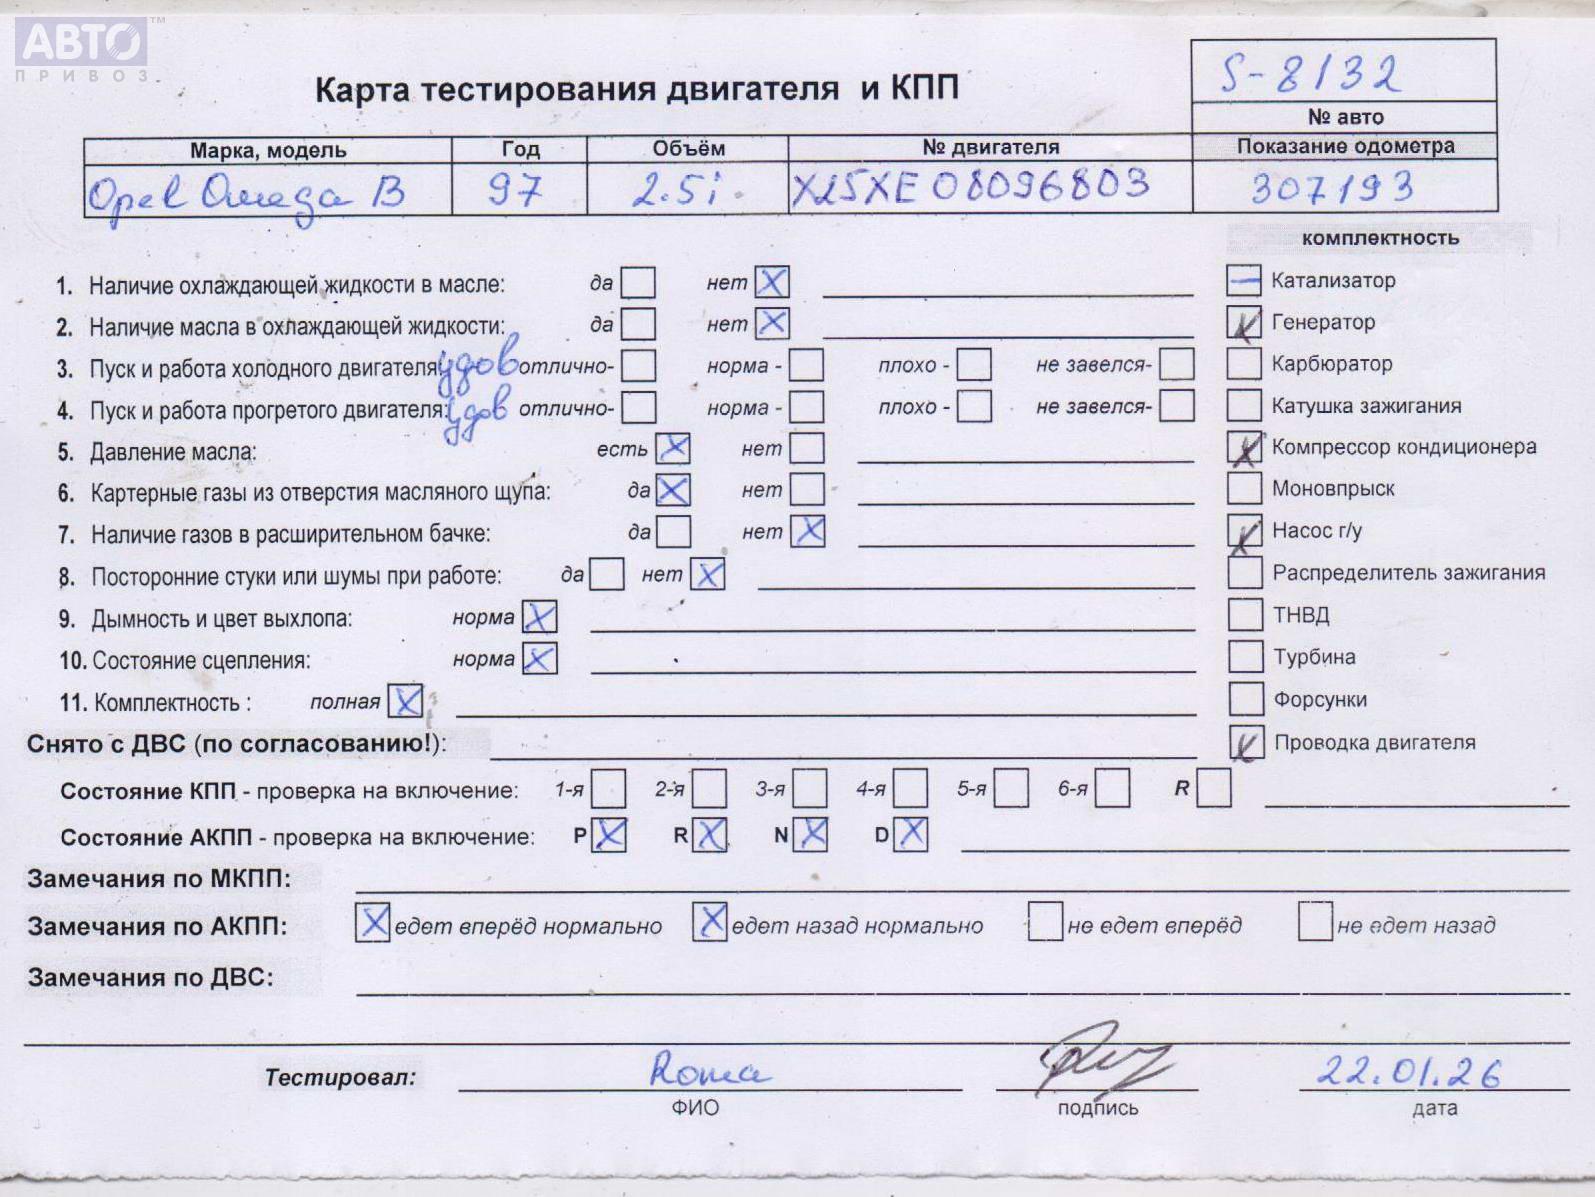 АВТО ™
ПРИВОЗ
Карта тестирования двигателя и КПП
S-8132
№ авто
Марка, модель Год Объём № двигателя Показание одометра
Opel Omega B 97 2.5i X25XE 08096803 307193
комплектность
1. Наличие охлаждающей жидкости в масле: да нет X Катализатор
2. Наличие масла в охлаждающей жидкости: да нет X Генератор
3. Пуск и работа холодного двигателя: удов отлично- норма - плохо - не завелся- Карбюратор
4. Пуск и работа прогретого двигателя: удов отлично- норма - плохо - не завелся- Катушка зажигания
5. Давление масла: есть X нет Компрессор кондиционера
6. Картерные газы из отверстия масляного щупа: да X нет Моновпрыск
7. Наличие газов в расширительном бачке: да нет X Насос г/у
8. Посторонние стуки или шумы при работе: да нет X Распределитель зажигания
9. Дымность и цвет выхлопа: норма X ТНВД
10. Состояние сцепления: норма X Турбина
11. Комплектность : полная X Форсунки
Снято с ДВС (по согласованию!): Проводка двигателя
Состояние КПП - проверка на включение: 1-я 2-я 3-я 4-я 5-я 6-я R
Состояние АКПП - проверка на включение: P X R X N X D X
Замечания по МКПП:
Замечания по АКПП: X едет вперёд нормально X едет назад нормально не едет вперёд не едет назад
Замечания по ДВС:
Тестировал: Roma 22.01.26
ФИО подпись дата